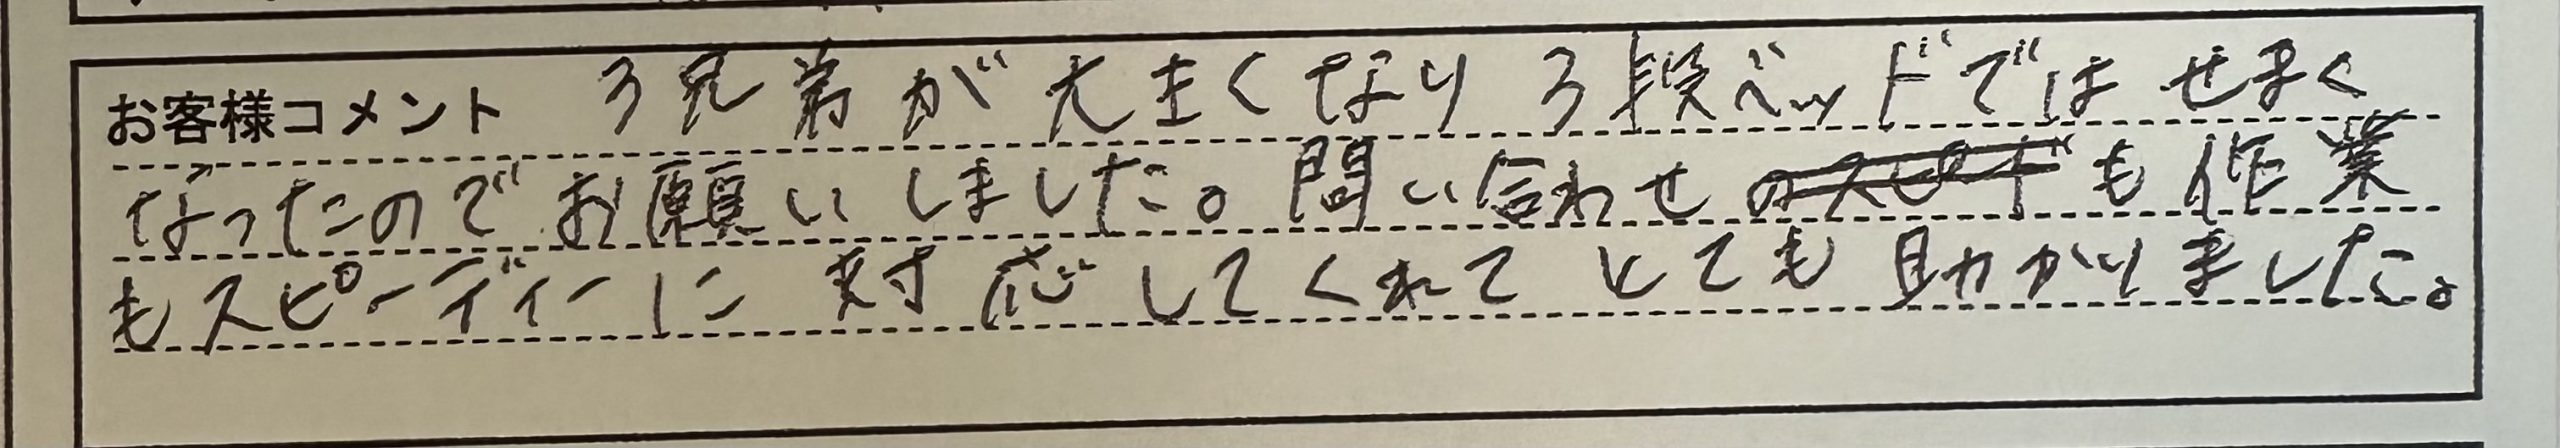 お客様コメント 3兄弟が大きくなり3段ベッドではせまく
なったのでお願いしました。問い合わせも作業
もスピーディーに対応してくれてとても助かりました。